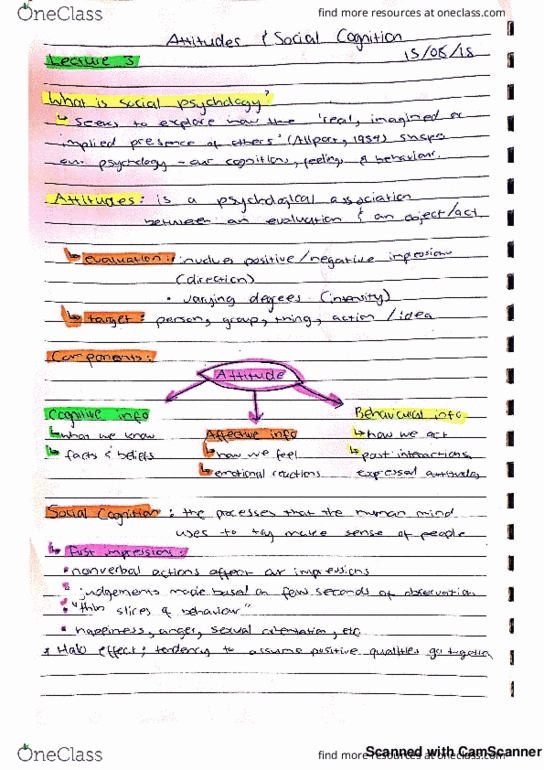 OneClass
find more resources at oneclass.com
Attitudes & Social Cognition
Lecture 3
15/06/18
What is social psychology?
↳ seeks to explore how the 'real, imagined or
implied presence of others' (Allport, 1954)
our psychology - our cognitions, feelings & behaviour.
Attitudes: is a psychological association
between an evaluation & an object/act
↳ evaluation: involves positive/negative impression
(direction)
• varying degrees (intensity)
↳ target: person, group, thing, action / idea
Components:
Attitude
Cognitive info
↳ what we know
↳ facts & beliefs
Affective info
↳ how we feel
↳ emotional reactions
Behavioural info
↳ how we act
↳ past interactions,
expressed attitudes
Social Cognition: the processes that the human mind
uses to try make sense of people
↳ First impressions:
• nonverbal actions affect our impressions
• judgements made based on few seconds of observation
• "thin slices of behaviour"
• happiness, anger, sexual orientation, etc
* Halo effect; tendency to assume positive qualities go together
OneClass
find more resources at oneclass.com
Scanned with CamScanner